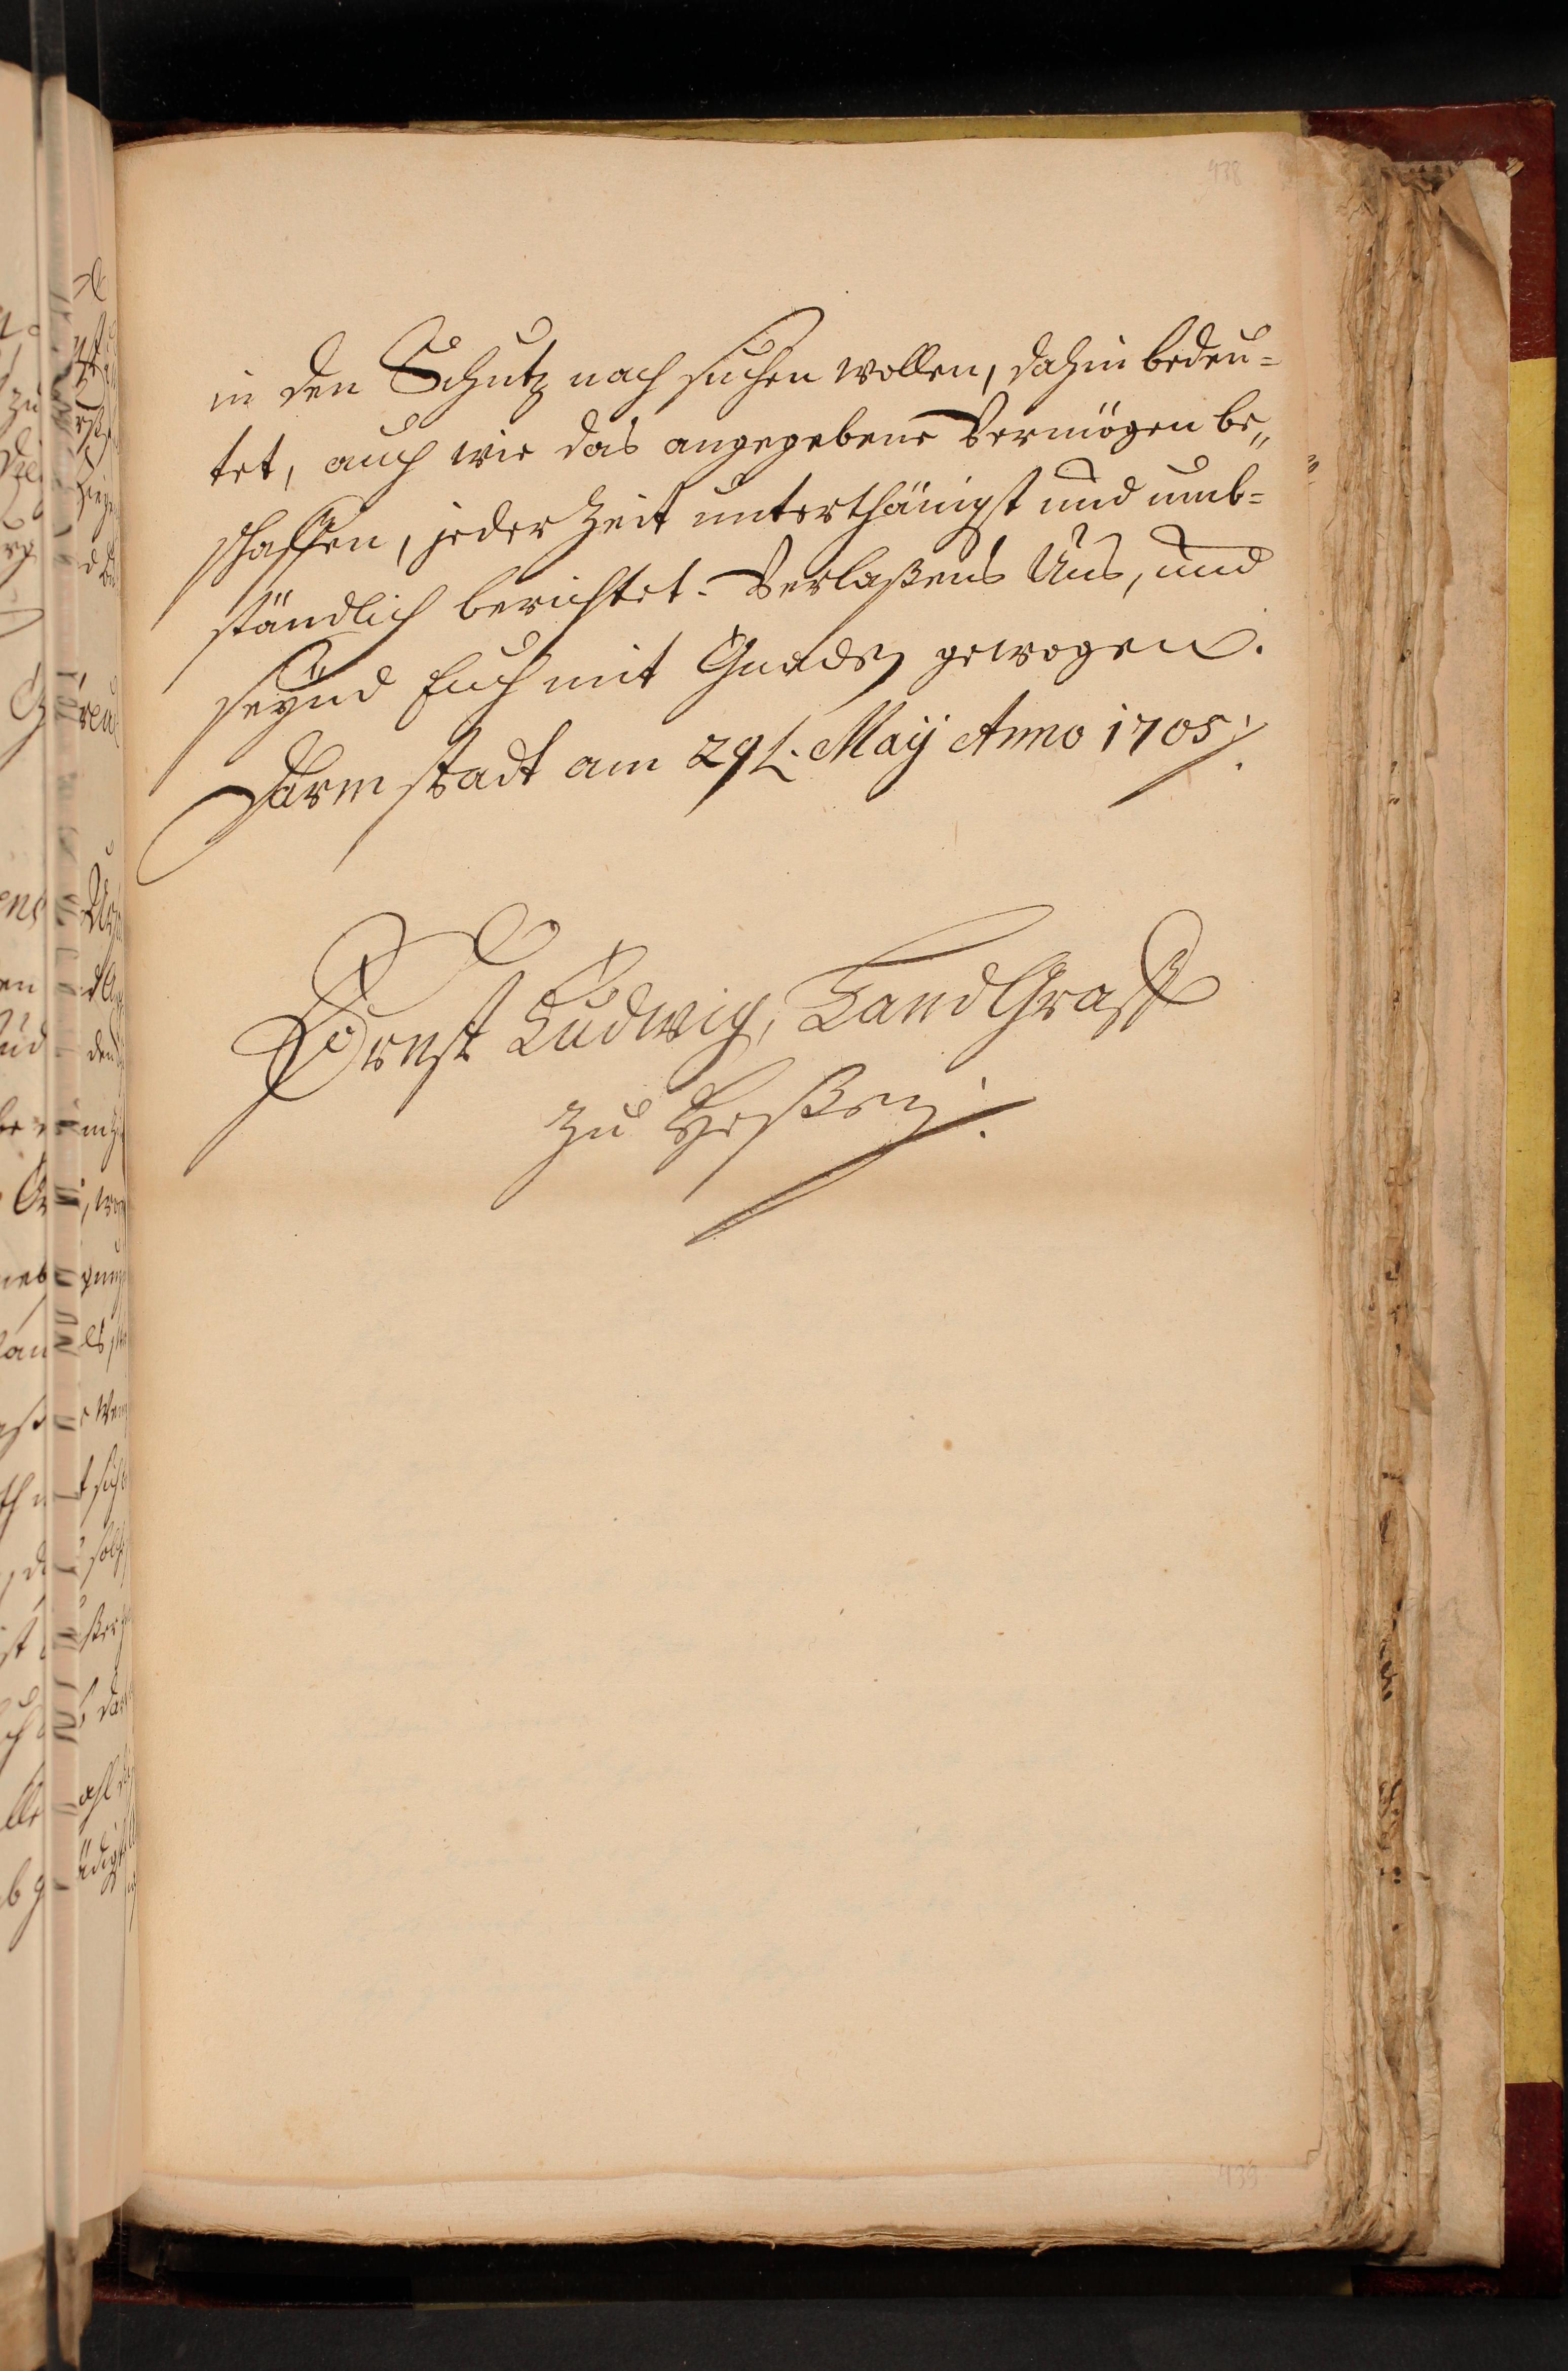 438
in den Schutz nach suchen wollen, dahin bedeu=
tet, auch wie das angegebene Vermögen be„
schaffen, jeder Zeit unterthänigst und umb=
ständlich berichtet. Verlaßens Uns, und
seynd Euch mit Gnaden gewogen.
Darmstadt am 29t. Maÿ Anno 1705
Ernst Ludwig, LandGraff
zu Heßen
439